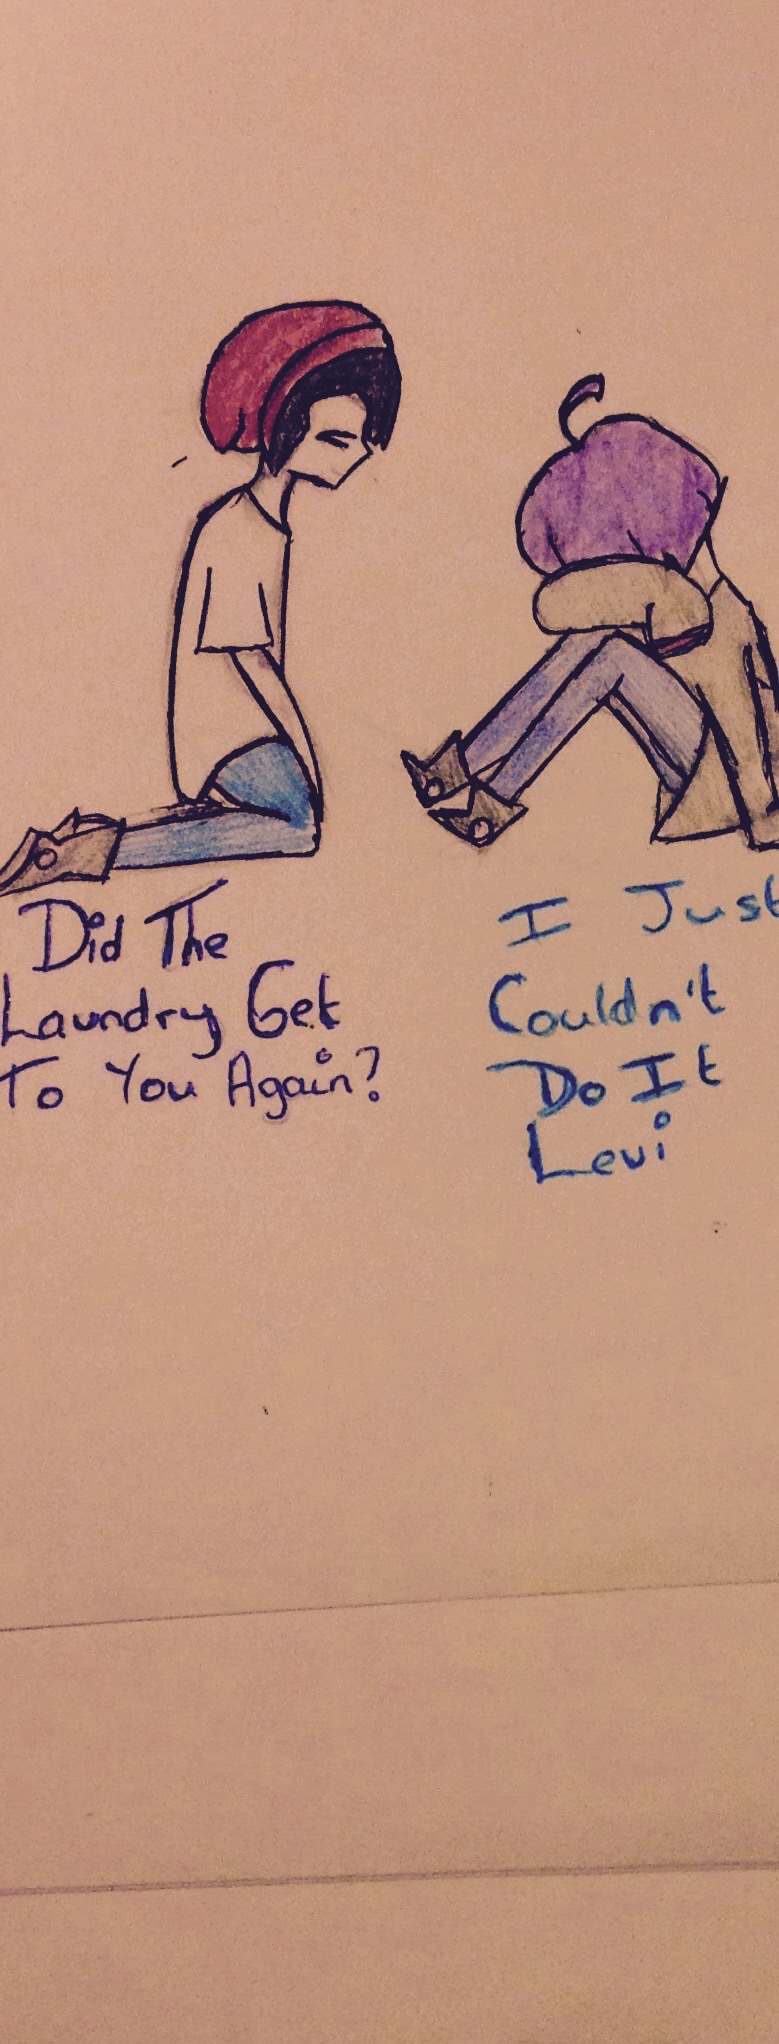 Did The
Laundry Get
To You Again?
I Just
Couldn't
Do It
Levi